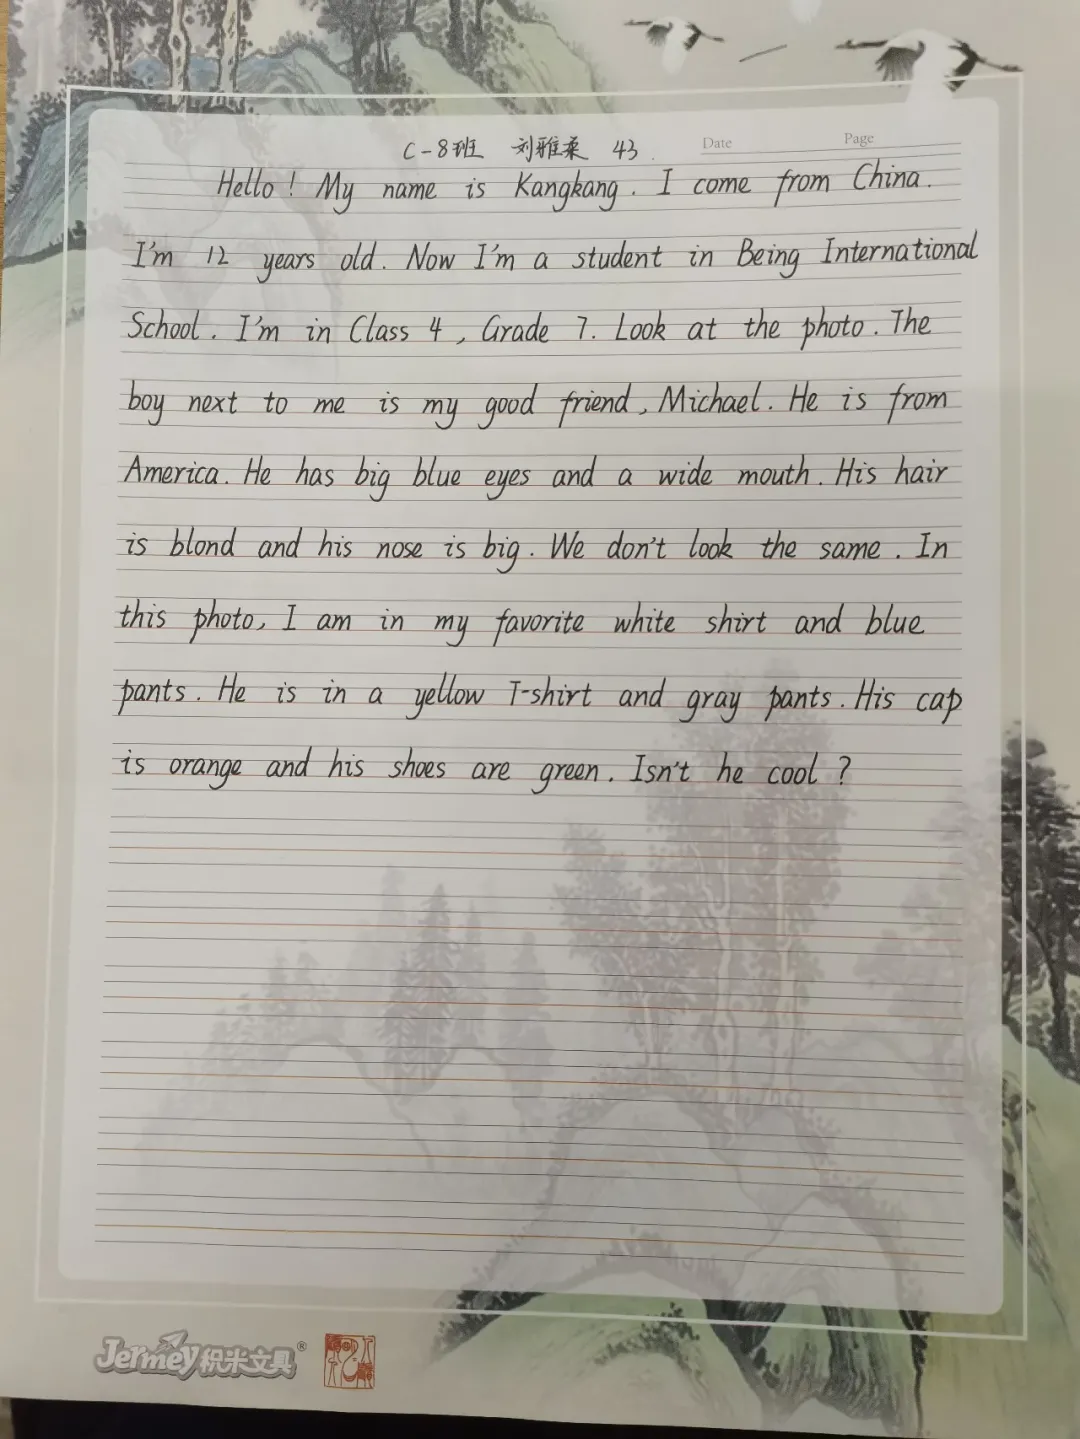 C-8班 刘雅柔 43
Date
Page
Hello! My name is Kangkang. I come from China.
I'm 12 years old. Now I'm a student in Being International
School. I'm in Class 4, Grade 7. Look at the photo. The
boy next to me is my good friend, Michael. He is from
America. He has big blue eyes and a wide mouth. His hair
is blond and his nose is big. We don't look the same. In
this photo, I am in my favorite white shirt and blue
pants. He is in a yellow T-shirt and gray pants. His cap
is orange and his shoes are green. Isn't he cool?
Jermey积米文具®